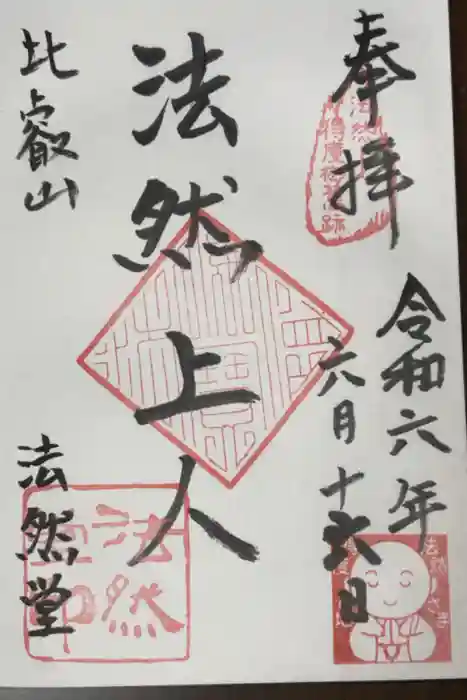 奉拝
令和六年
六月十六日
法然上人
比叡山
法然堂
法然
得度御旧跡
法然堂印
法然さま